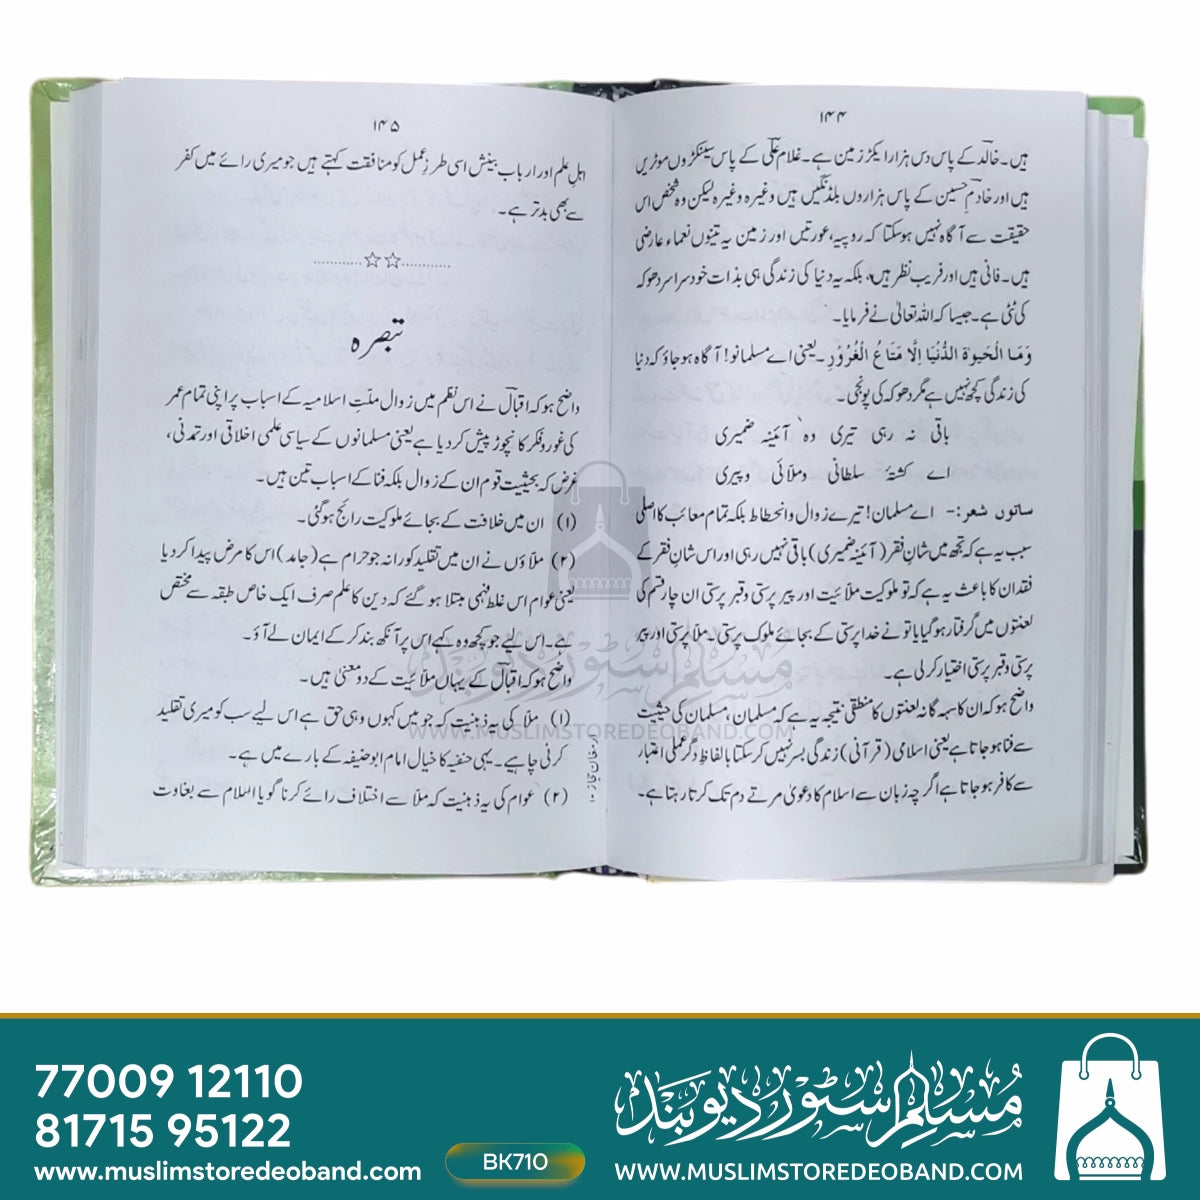 ۱۴۴
ہیں۔ خالد کے پاس دس ہزار ایکڑ زمین ہے۔ غلام علی کے پاس سینکڑوں موٹریں
ہیں اور خادم حسین کے پاس ہزاروں بلڈنگیں ہیں وغیرہ وغیرہ لیکن وہ شخص اس
حقیقت سے آگاہ نہیں ہوسکتا کہ روپیہ، عورتیں اور زمین یہ تینوں نعماء عارضی
ہیں۔ فانی ہیں اور فریب نظر ہیں، بلکہ یہ دنیا کی زندگی ہی بذات خود سراسر دھوکہ
کی ٹٹی ہے۔ جیسا کہ اللہ تعالیٰ نے فرمایا۔
وَمَا الْحَیٰوۃُ الدُّنْیَا اِلَّا مَتَاعُ الْغُرُوْرِ۔ یعنی اے مسلمانو! آگاہ ہوجاؤ کہ دنیا
کی زندگی کچھ نہیں ہے مگر دھوکہ کی پونجی۔
باقی نہ رہی تیری وہ آئینہ ضمیری
اے کشتۂ سلطانی و ملائی و پیری
ساتوں شعر:- اے مسلمان! تیرے زوال وانحطاط بلکہ تمام معائب کا اصلی
سبب یہ ہے کہ تجھ میں شانِ فقر (آئینہ ضمیری) باقی نہیں رہی اور اس شان فقر کے
فقدان کا باعث یہ ہے کہ تو ملوکیت ملائیت اور پیر پرستی وقبر پرستی ان چار قسم کی
لعنتوں میں گرفتار ہوگیا یا تو نے خدا پرستی کے بجائے ملوک پرستی۔ ملا پرستی اور پیر
پرستی وقبر پرستی اختیار کرلی ہے۔
واضح ہو کہ ان کا سہ گانہ لعنتوں کا منطقی نتیجہ یہ ہے کہ مسلمان، مسلمان کی حیثیت
سے فنا ہوجاتا ہے یعنی اسلامی (قرآنی) زندگی بسر نہیں کرسکتا بالفاظ دگر عملی اعتبار
سے کافر ہوجاتا ہے اگرچہ زبان سے اسلام کا دعویٰ مرتے دم تک کرتا رہتا ہے۔
۱۴۵
اہلِ علم اور ارباب بینش اسی طرزِ عمل کو منافقت کہتے ہیں جو میری رائے میں کفر
سے بھی بدتر ہے۔
...........☆☆...........
تبصرہ
واضح ہو کہ اقبال نے اس نظم میں زوال ملتِ اسلامیہ کے اسباب پر اپنی تمام عمر
کی غور وفکر کا نچوڑ پیش کردیا ہے یعنی مسلمانوں کے سیاسی علمی اخلاقی اور تمدنی،
غرض کہ بحیثیت قوم ان کے زوال بلکہ فنا کے اسباب تین ہیں۔
(۱) ان میں خلافت کے بجائے ملوکیت رائج ہوگئی۔
(۲) ملاؤں نے ان میں تقلید کورانہ جو حرام ہے (جامد) اس کا مرض پیدا کردیا
یعنی عوام اس غلط فہمی مبتلا ہوگئے کہ دین کا علم صرف ایک خاص طبقہ سے مختص
ہے۔ اس لیے جو کچھ وہ کہے اس پر آنکھ بند کرکے ایمان لے آؤ۔
واضح ہو کہ اقبال کے یہاں ملائیت کے دو معنیٰ ہیں۔
(۱) ملا کی یہ ذہنیت کہ جو میں کہوں وہی حق ہے اس لیے سب کو میری تقلید
کرنی چاہیے۔ یہی حنفیہ کا خیال امام ابو حنیفہ کے بارے میں ہے۔
(۲) عوام کی یہ ذہنیت کہ ملا سے اختلاف رائے کرنا گویا اسلام سے بغاوت
مسلم سٹور دیوبند
WWW.MUSLIMSTOREDEOBAND.COM
77009 12110
81715 95122
www.muslimstoredeoband.com
BK710
مسلم سٹور دیوبند
WWW.MUSLIMSTOREDEOBAND.COM